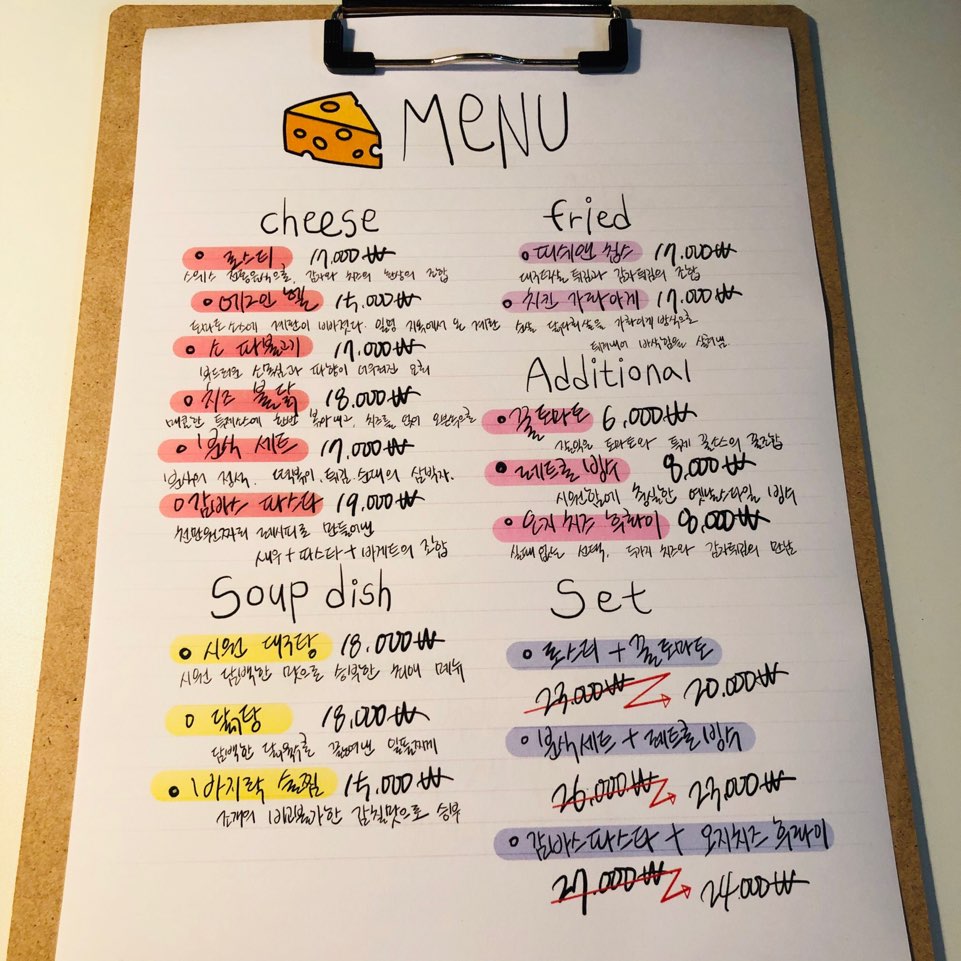 MENU
cheese
로스티 17,000₩
스위스 전통음식으로, 감자와 치즈의 환상의 조합
에그인 헬 15,000₩
토마토 소스에 계란이 빠졌다. 일명 지옥에서 온 계란
소 파불고기 17,000₩
부드러운 소목심과 파향이 어우러진 요리
치즈 불닭 18,000₩
매콤한 특제소스에 한번 볶아내고, 치즈를 얹어 오븐속으로
분식 세트 17,000₩
분식의 정석. 떡볶이, 튀김, 순대의 삼박자.
감바스 파스타 19,000₩
천만원짜리 레시피로 만들어낸
새우 + 파스타 + 바게트의 조합
Soup dish
시원 대구탕 18,000₩
시원 담백한 맛으로 승부한 최애 메뉴
닭곰탕 18,000₩
담백한 닭육수로 끓여낸
바지락 술찜 15,000₩
조개의 비교불가한 감칠맛으로 승부
fried
피쉬앤 칩스 17,000₩
대구다릿살 튀김과 감자튀김의 조합
치킨 가라아게 17,000₩
순살 닭다리살을 가라아게 방식으로
튀겨내어 바삭함을 살려냄.
Additional
꿀토마토 6,000₩
잘익은 토마토와 특제 꿀소스의 꿀조합
레트로 빙수 8,000₩
시원함에 충실한 옛날스타일 빙수
오지 치즈 후라이 8,000₩
실패없는 선택, 두가지 치즈와 감자튀김의 만남
Set
로스티 + 꿀토마토
23,000₩ 20,000₩
분식세트 + 레트로빙수
26,000₩ 23,000₩
감바스파스타 + 오지치즈 후라이
27,000₩ 24,000₩